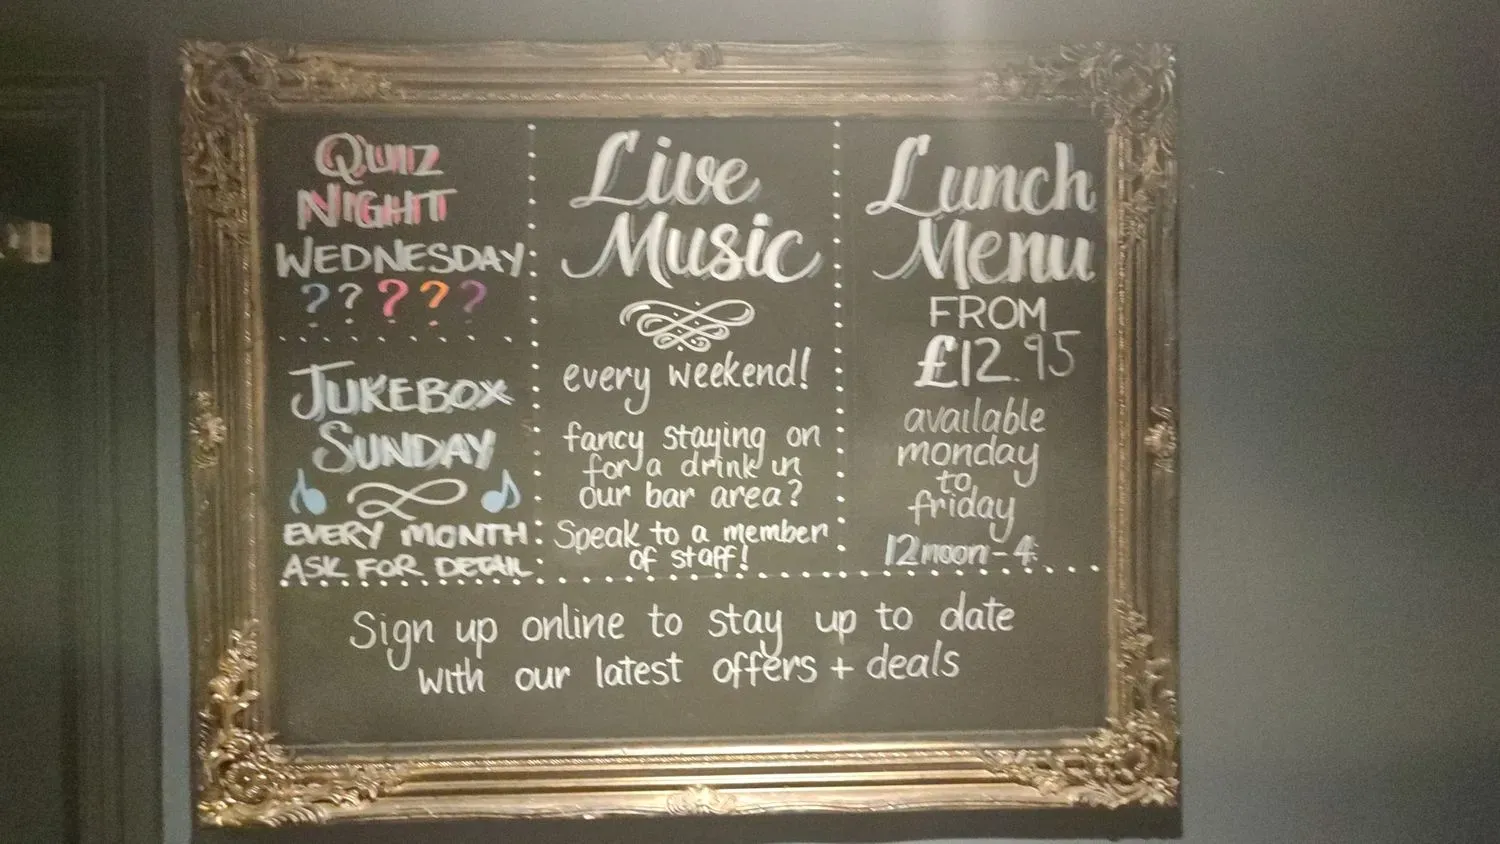 QUIZ
NIGHT
WEDNESDAY
? ? ? ? ?
JUKEBOX
SUNDAY
EVERY MONTH
ASK FOR DETAIL
Live
Music
every weekend!
fancy staying on
for a drink in
our bar area?
Speak to a member
of staff!
Lunch
Menu
FROM
£12.95
available
monday
to
friday
12noon-4
Sign up online to stay up to date
with our latest offers + deals